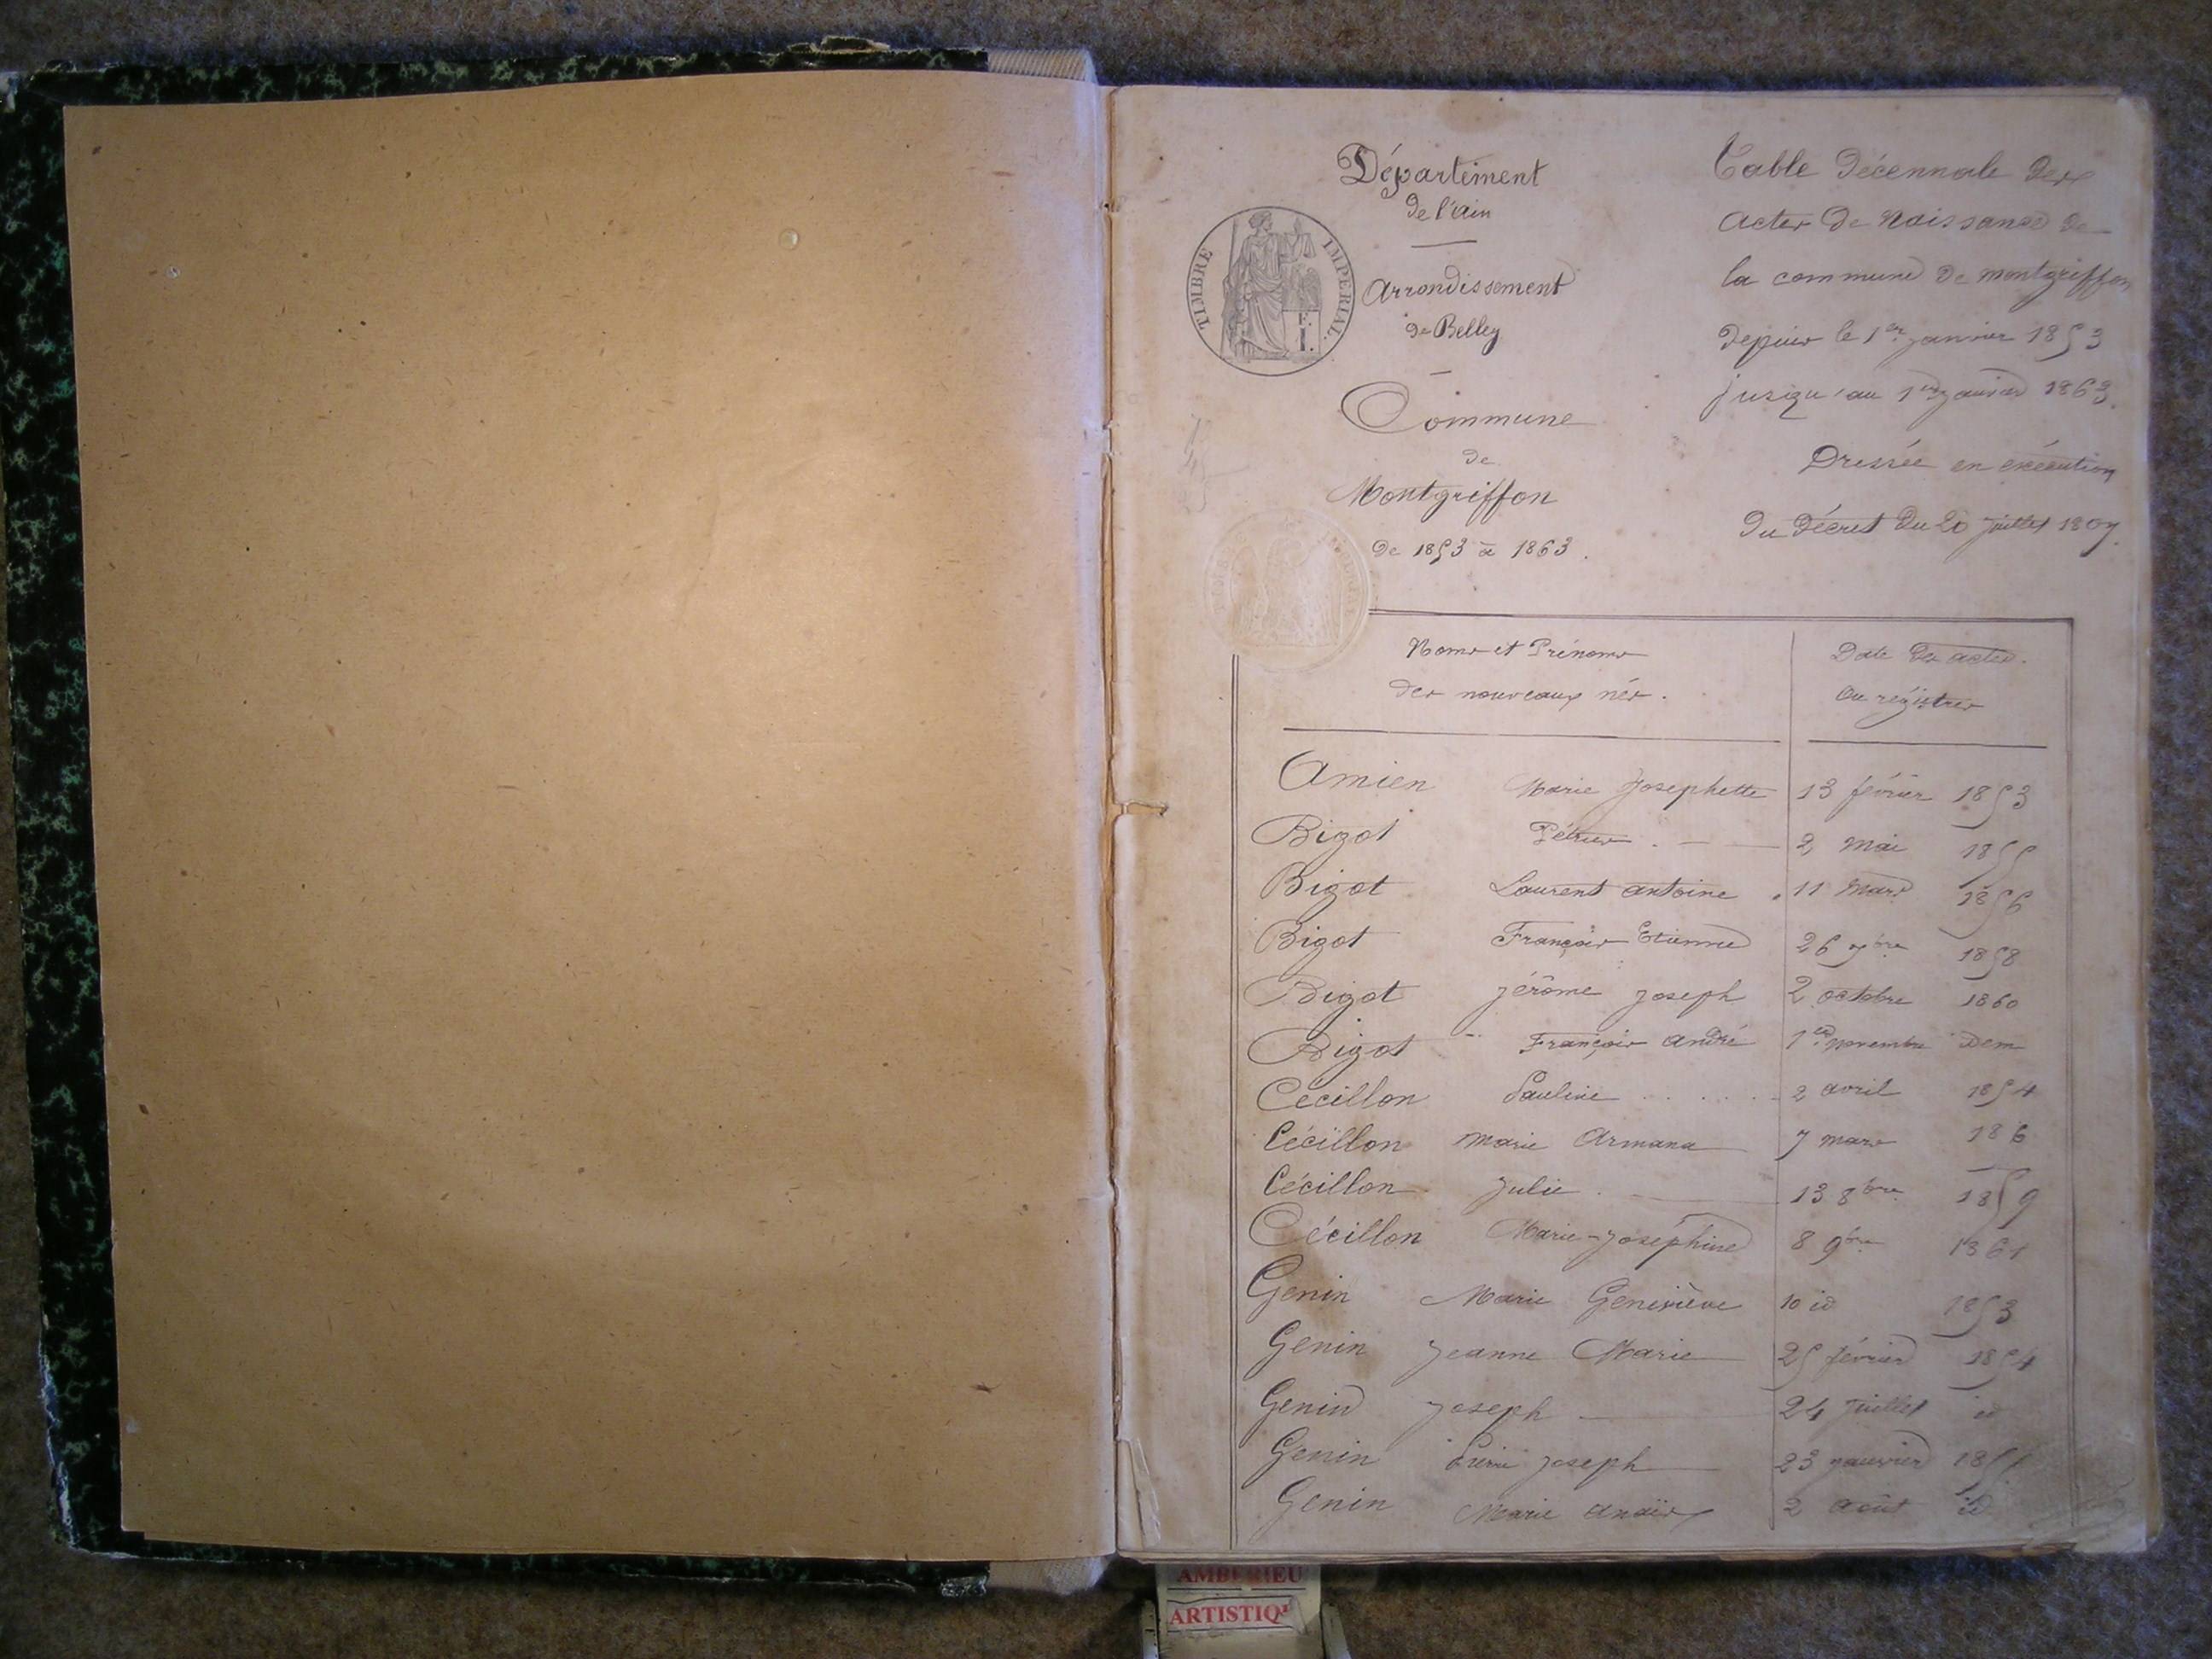 Département
de l'ain
TIMBRE IMPERIAL.
E.
I.
Arrondissement
de Belley
Commune
de
Montgriffon
de 1853 à 1863.
Table Décennale des
actes de Naissance de
la commune de montgriffon
Depuis le 1er janvier 1853
jusqu'au 1er janvier 1863.
Dressée en exécution
du Décret du 20 juillet 1807.
Noms et Prénoms
des nouveaux nés.
Date des actes
ou régistres
Amien Marie Josephette 13 février 1853
Bigot 2, mai 1855
Bigot Laurent antoine 11 mars 1856
Bigot François Etienne 26 7bre 1858
Bigot jérôme joseph 2 octobre 1860
Bigot François andré 1er novembre Dem
Cécillon Pauline 2 avril 1854
Cécillon marie Armana 7 mars 186
Cécillon Julie 13 8bre 1859
Cécillon Marie-joséphine 8 9bre 1861
Genin Marie Geneviève 10 id 1853
Genin jeanne Marie 25 février 1854
Genin joseph 24 juillet id
Genin Pierre joseph 23 janvier
Genin Marie anaïs 2 août id
AMBERIEU
ARTISTIQ